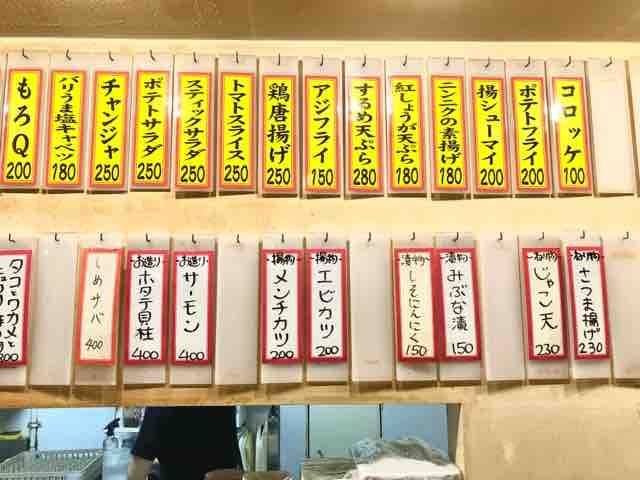 コロッケ 100
ポテトフライ 200
揚シューマイ 200
ニンニクの素揚げ 180
紅しょうが天ぷら 180
するめ天ぷら 280
アジフライ 150
鶏唐揚げ 250
トマトスライス 250
スティックサラダ 250
ポテトサラダ 250
チャンジャ 250
バリうま塩キャベツ 180
もろQ 200
ねり物 さつま揚げ 230
ねり物 じゃこ天 230
漬物 みぶな漬 150
漬物 しそにんにく 150
揚物 エビカツ 200
揚物 メンチカツ 200
お造り サーモン 400
お造り ホタテ貝柱 400
しめサバ 400
タコとワカメと
300